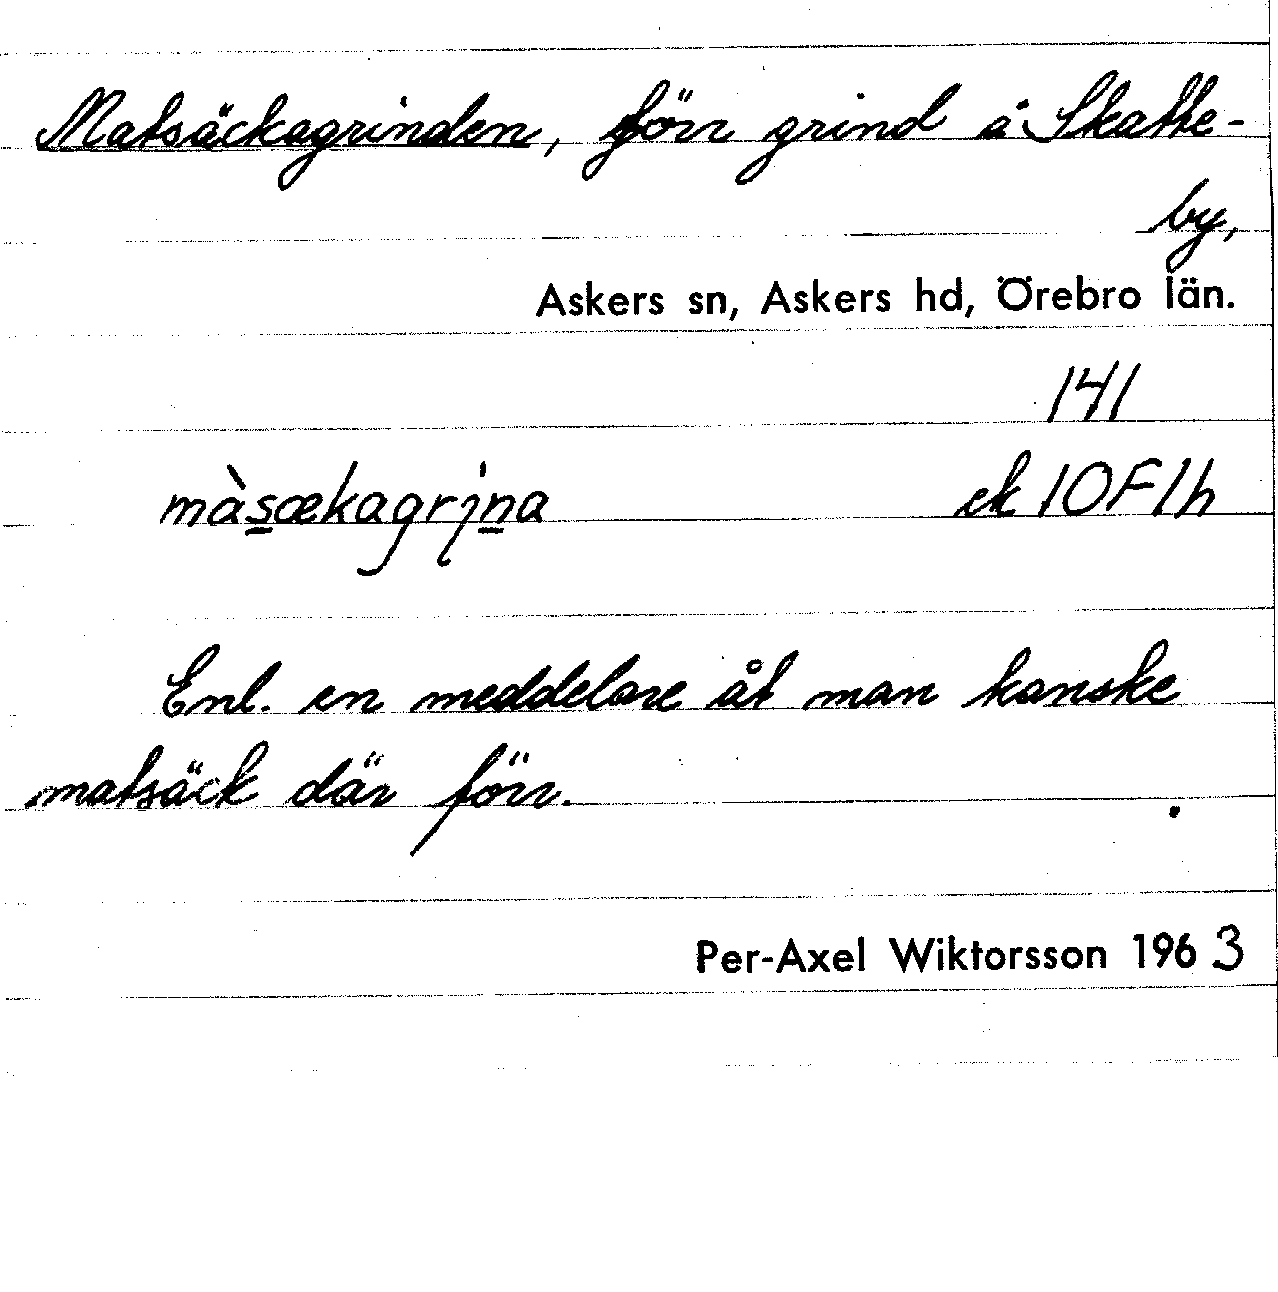 Matsäckagrinden, förr grind å Skatte-
by,
Askers sn, Askers hd, Örebro län.
141
màsækagri̩na ek 10F1h
Enl. en meddelare åt man kanske
matsäck där förr.
Per-Axel Wiktorsson 1963